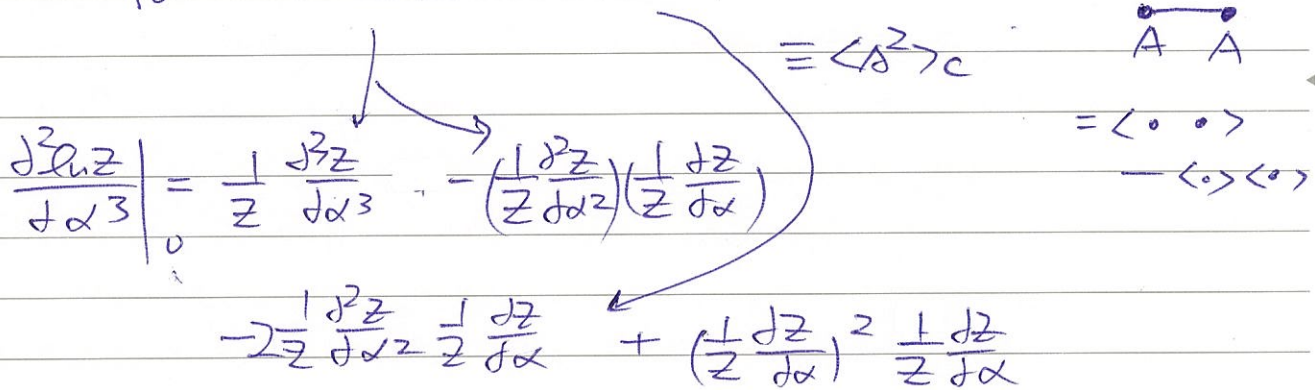 ≡ <A²>c
A A
= <• •>
− <•><•>
d³lnZ/dα³ |₀ = 1/Z d³Z/dα³ − (1/Z d²Z/dα²)(1/Z dZ/dα)
−2 1/Z d²Z/dα² 1/Z dZ/dα + (1/Z dZ/dα)² 1/Z dZ/dα